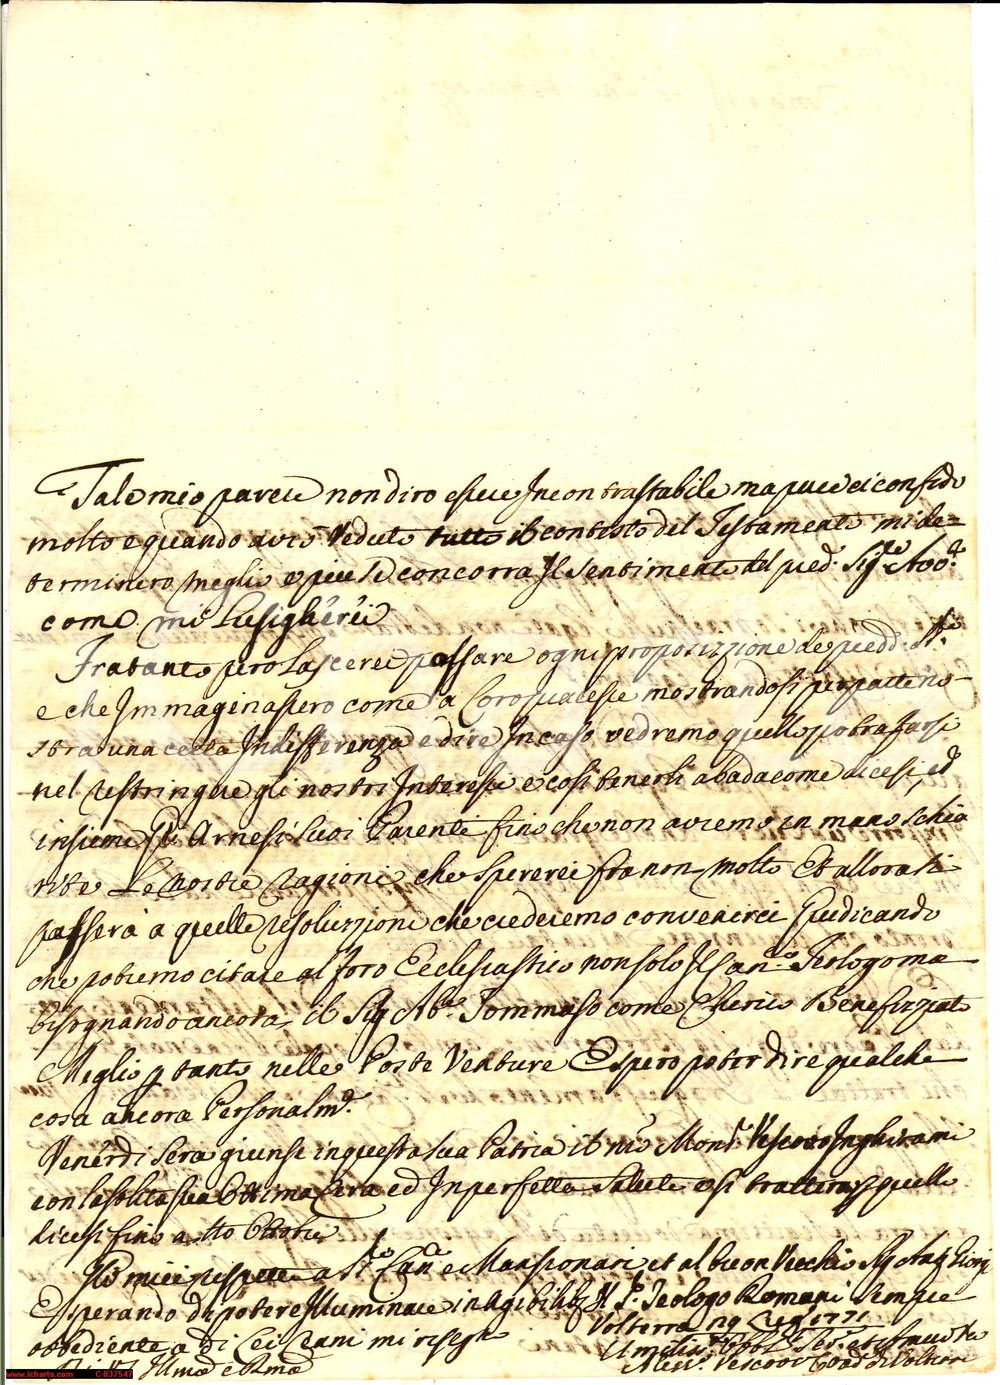 Tale mio parere non diro essere Incontrastabile ma pure ci confido
molto e quando avrò Veduto tutto il contesto del Testamento mi de=
terminero meglio e piu se concorra Il sentimento del pred. Sig.
come mi Lusigherei
Fratanto pero Lascerei passare ogni proporizzione de predd.
e che Immaginassero come a Loro mostrandosi per parte no-
stra una certa Indifferenza e dire In caso vedremo quello potra farsi
nel restringere gli nostri Interessi e così tenerli a bada come dicesi, ed
insieme Arnesi suoi Parenti fino che non avremo in mano schia
rite Le nostre ragioni che spererei fra non molto Et allora si
passerà a quelle resoluzzioni che crederemo convenirci Giudicando
che potremo citare al foro Ecclesiastico non solo Il Can.co Teologo ma
bisognando ancora il Sig Ab.e Tommaso come Cherico Benefizziato
Meglio p tanto nelle Poste Venture E spero poter dire qualche
cosa ancora Personalm.
Venerdi sera giunse in questa sua Patria il Mons. Vescovo Inghirami
con la solita sua Ottima Cera ed In perfetta Salute e si tratterra p quello
dicesi fino a tto Ottobre
miei rispetti a Can e Mansionari et al buon Vecchio Sig
E sperando di potere Illuminare Il Teologo Romani Sempre
obbediente a di Lei Cenni mi rassegno
Volterra 29 Lug 1771
Vescovo Coad di Volterra
Illma e Rma
www.icharta.com C-037547